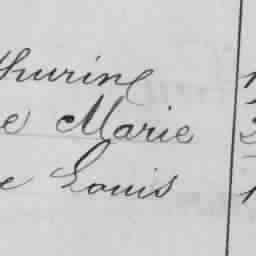 thurine
e Marie
e Louis